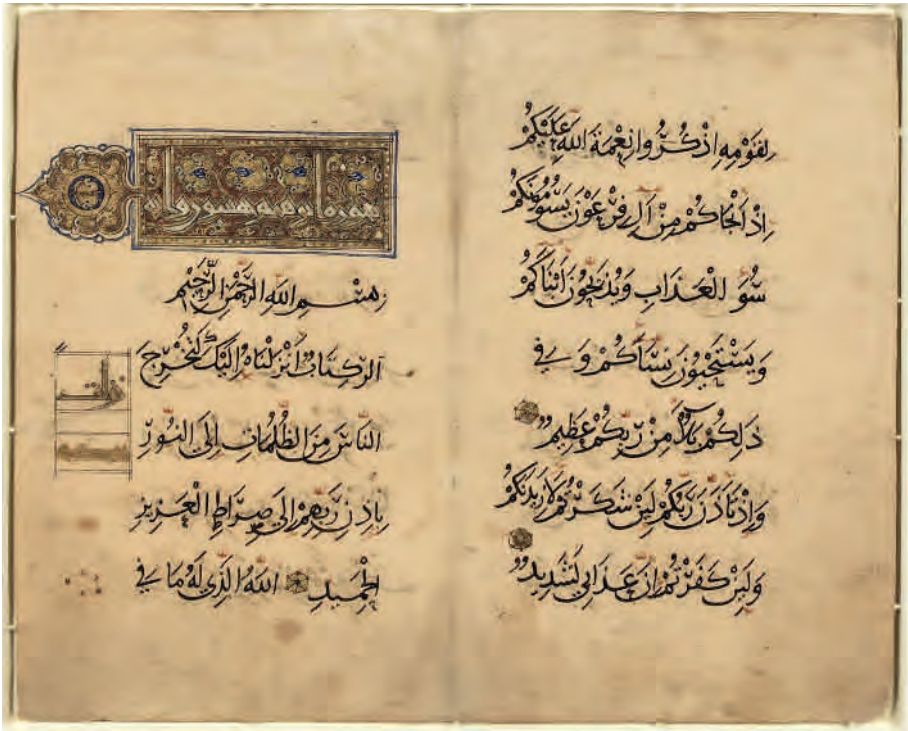 لِقَوْمِهِ اذْكُرُوا نِعْمَةَ اللهِ عَلَيْكُمْ
اِذْ اَنْجَاكُمْ مِنْ اٰلِ فِرْعَوْنَ يَسُومُونَكُمْ
سُوَ الْعَذَابِ وَيُذَبِّحُونَ اَبْنَاَكُمْ
وَيَسْتَحْيُونَ نِسَاَكُمْ وَفِي
ذَلِكُمْ بَلَاٌ مِنْ رَبِّكُمْ عَظِيمٌ
وَاِذْ تَاَذَّنَ رَبُّكُمْ لَئِنْ شَكَرْتُمْ لَاَزِيدَنَّكُمْ
وَلَئِنْ كَفَرْتُمْ اِنَّ عَذَابِي لَشَدِيدٌ
بِسْمِ اللهِ الرَّحْمٰنِ الرَّحِيْمِ
الٓر كِتَابٌ اَنْزَلْنَاهُ اِلَيْكَ لِتُخْرِجَ
النَّاسَ مِنَ الظُّلُمَاتِ اِلَى النُّورِ
بِاِذْنِ رَبِّهِمْ اِلَى صِرَاطِ الْعَزِيزِ
الْحَمِيدِ اللهُ الَّذِي لَهُ مَا فِي